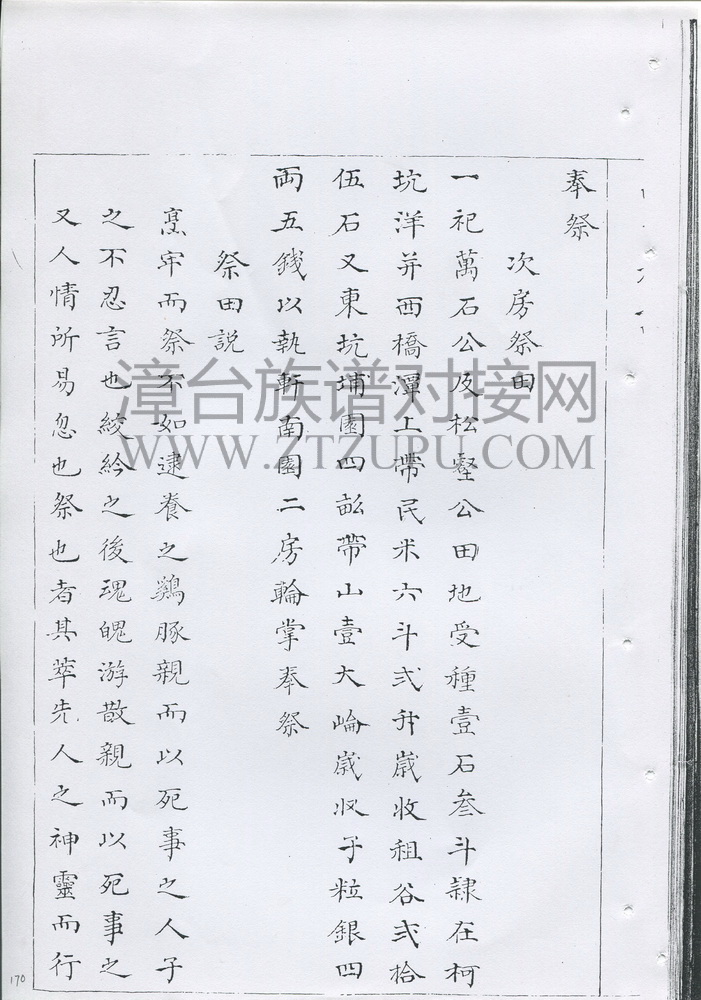 奉祭
次房祭田
一祀萬石公及松壑公田地受種壹石叁斗隷在柯
坑洋并西橋潭上帶民米六斗弍升歲收租谷弍拾
伍石又東坑埔園四畝帶山壹大崙歲収子粒銀四
両五錢以執軒南園二房輪掌奉祭
祭田説
烹牢而祭不如逮養之鷄豚親而以死事之人子
之不忍言也絞紟之後魂魄游散親而以死事之
又人情所易忽也祭也者其萃先人之神靈而行
170
漳台族谱对接网
WWW.ZTZUPU.COM